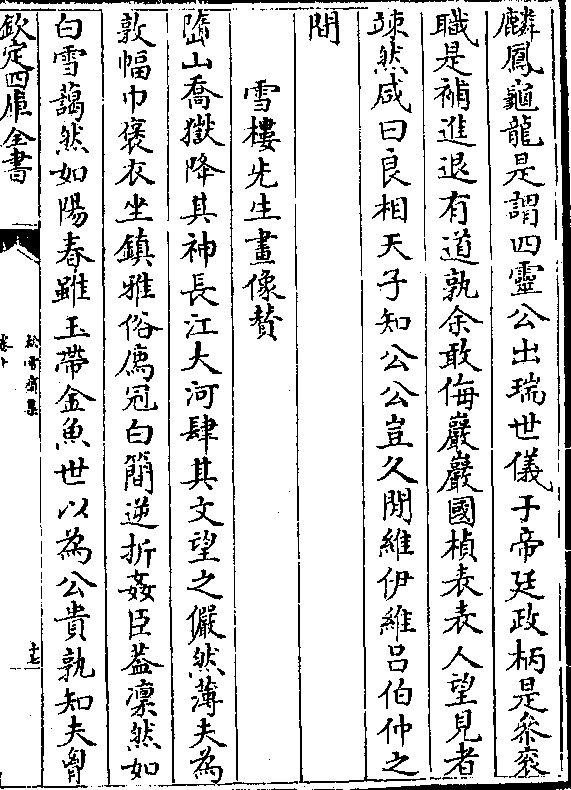 麟鳳龜龍是謂四靈公出瑞世儀于帝廷政柄是叅衮
職是補進退有道孰余敢侮巖巖國楨表表人望見者
竦然咸曰良相天子知公公豈久閒維伊維吕伯仲之
間
雪樓先生畫像贊
嶞山喬嶽降其神長江大河肆其文望之儼然薄夫為
敦幅巾褒衣坐鎮雅俗廌冠白簡逆折姦臣葢凛然如
白雪藹然如陽春雖玉帶金魚世以為公貴孰知夫胷
欽定四庫全書
松雪齋集
卷十
十七